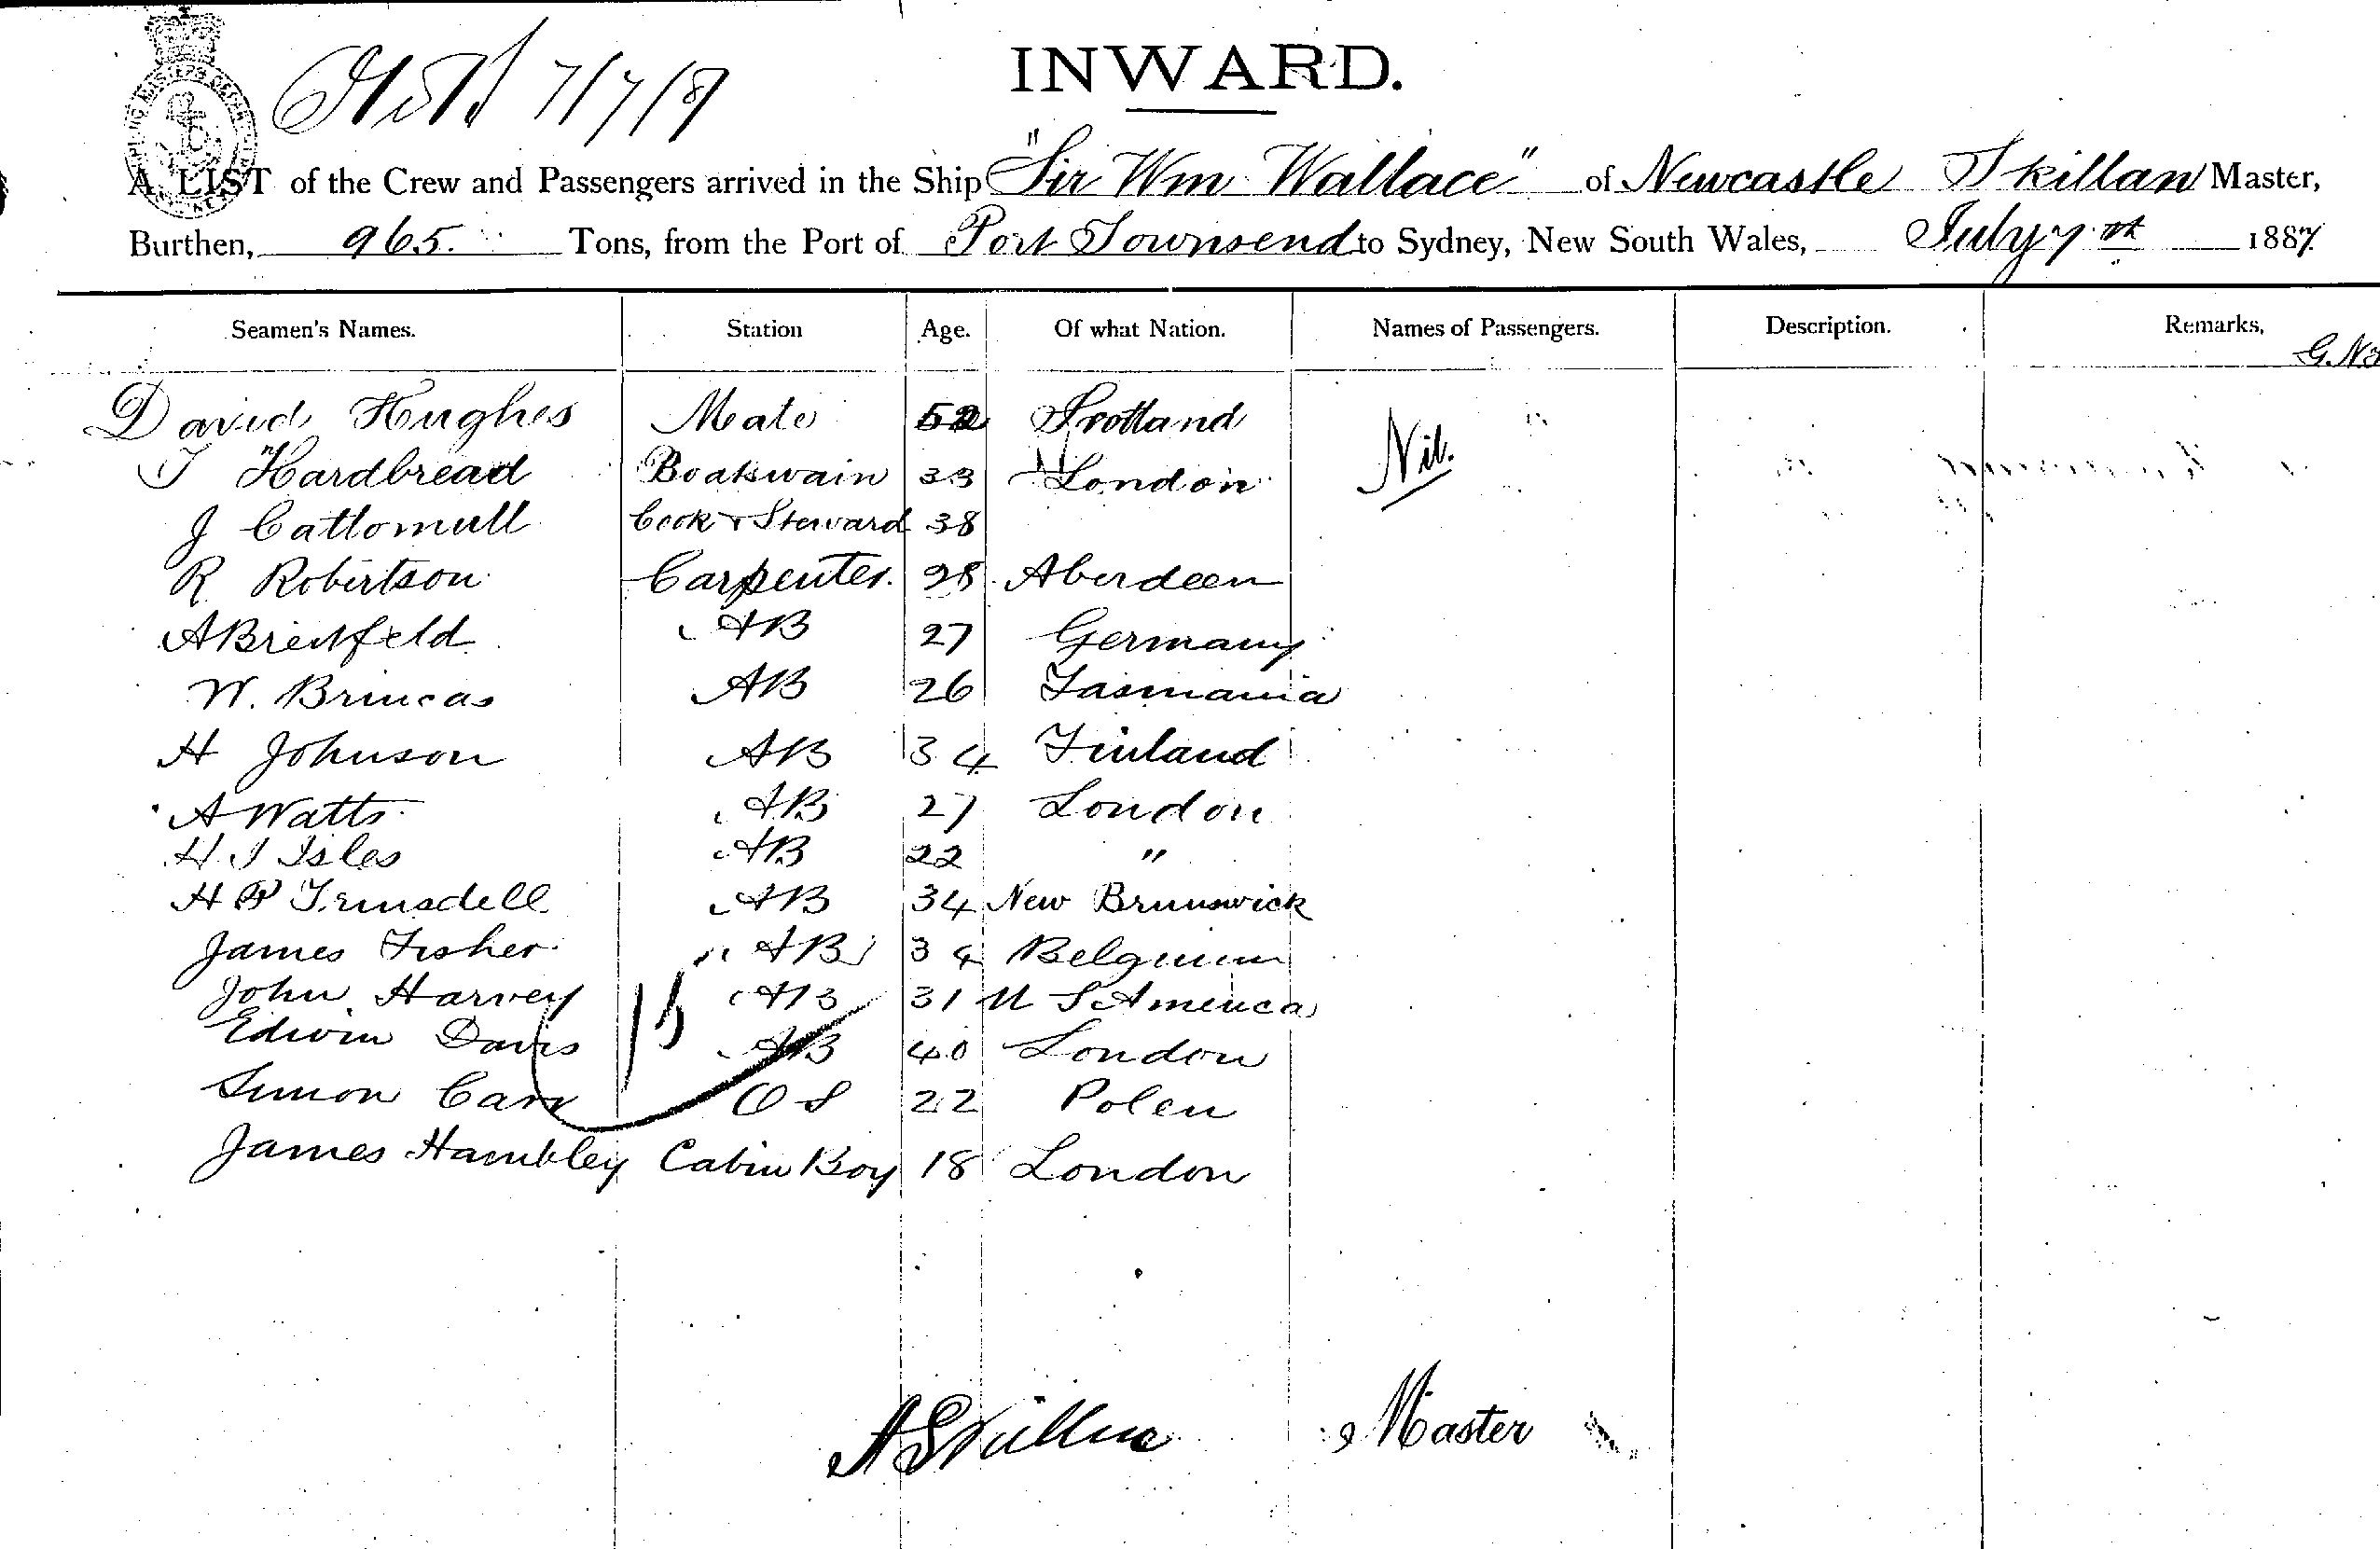 7/7/87
INWARD.
A LIST of the Crew and Passengers arrived in the Ship "Sir Wm Wallace" of Newcastle Skillan Master,
Burthen, 965. Tons, from the Port of Port Townsend to Sydney, New South Wales, July 7th 1887
Seamen's Names. Station Age. Of what Nation. Names of Passengers. Description. Remarks,
David Hughes Mate 52 Scotland Nil.
J Hardbread Boatswain 33 London
J Cattomull Cook & Steward 38
R Robertson Carpenter. 28 Aberdeen
A Breitfeld AB 27 Germany
W. Brincas AB 26 Tasmania
H Johnson AB 34 Finland
A Watts AB 27 London
H. J Isles AB 22 "
H P Trusdell AB 34 New Brunswick
James Fisher AB 34 Belgium
John Harvey AB 31 U S America
Edwin Davis AB 40 London
Simon Carr O S 22 Polen
James Hambley Cabin Boy 18 London
15
A Skillan Master